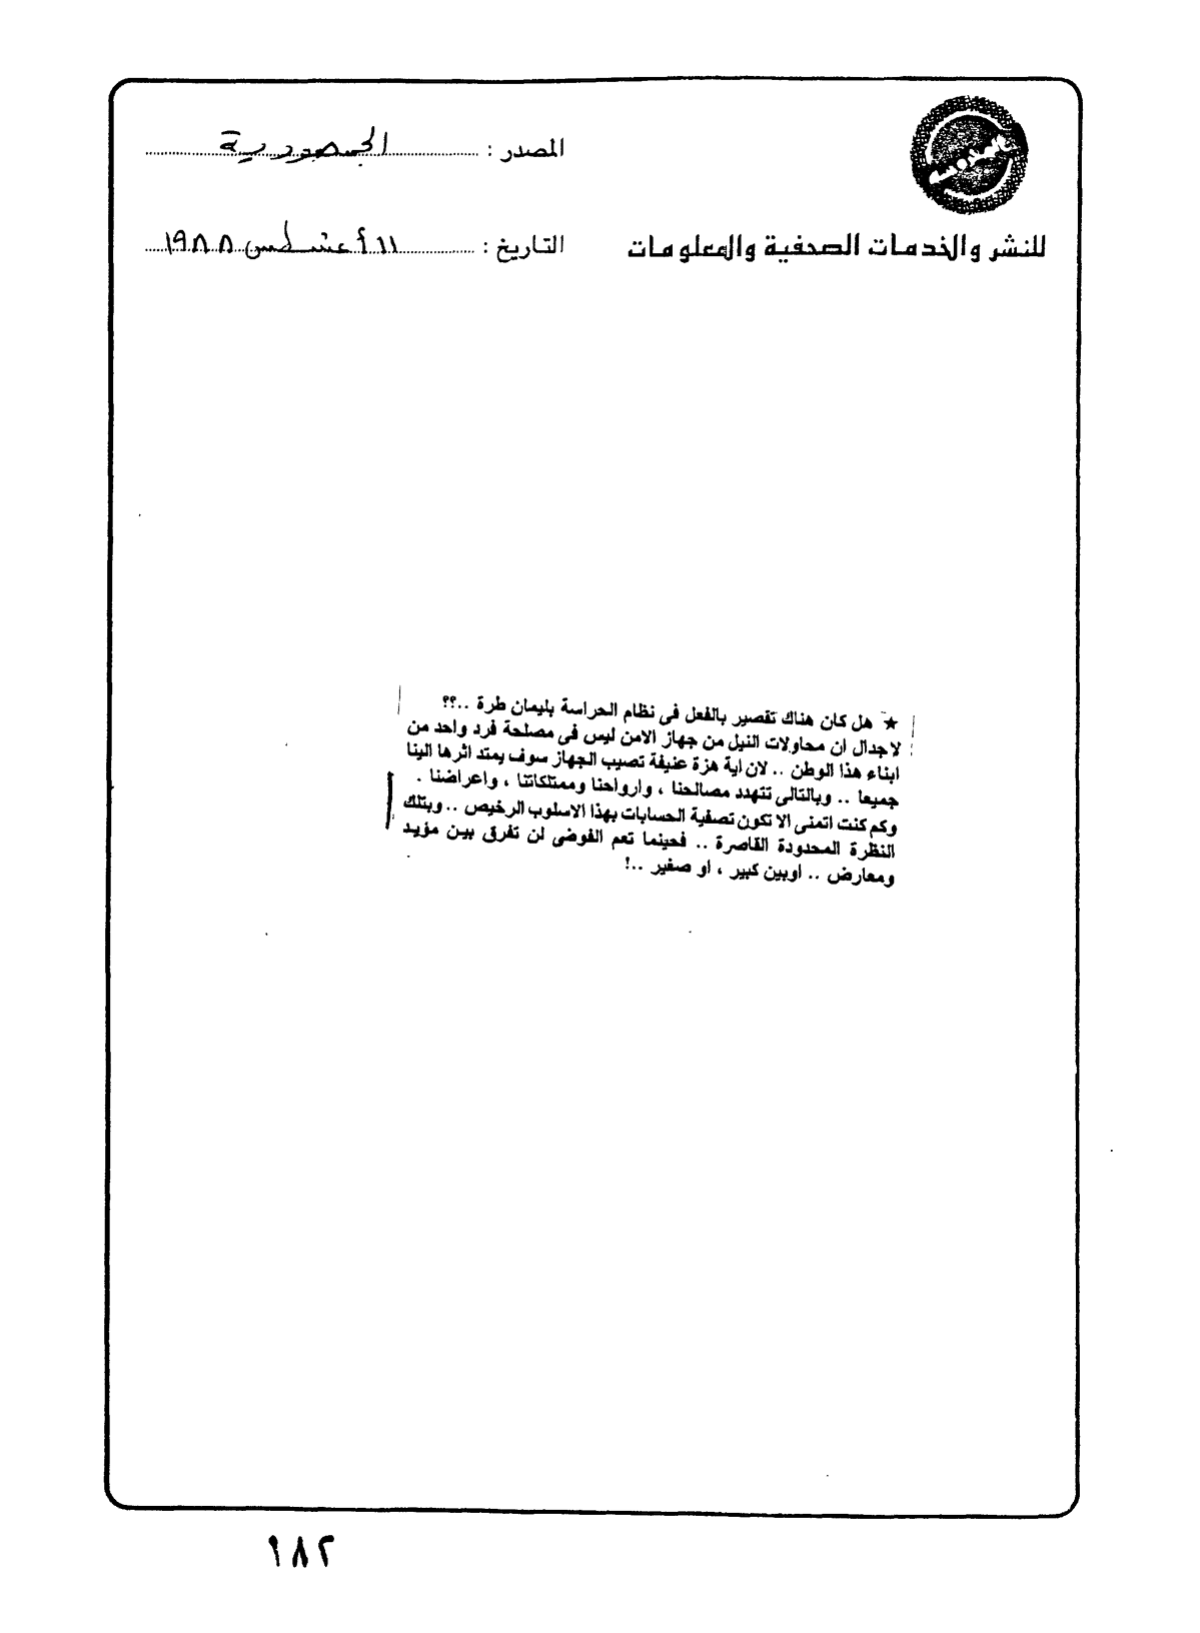 المصدر : الجمهورية
للنشر والخدمات الصحفية والمعلومات
التاريخ : ١١ أغسطس ١٩٨٨
★ هل كان هناك تقصير بالفعل فى نظام الحراسة بليمان طرة ..؟؟
لاجدال ان محاولات النيل من جهاز الامن ليس فى مصلحة فرد واحد من
ابناء هذا الوطن .. لان اية هزة عنيفة تصيب الجهاز سوف يمتد اثرها الينا
جميعا .. وبالتالى تتهدد مصالحنا ، وارواحنا وممتلكاتنا ، واعراضنا .
وكم كنت اتمنى الا تكون تصفية الحسابات بهذا الاسلوب الرخيص .. وبتلك
النظرة المحدودة القاصرة .. فحينما تعم الفوضى لن تفرق بين مؤيد
ومعارض .. اوبين كبير ، او صغير ..!
١٨٢